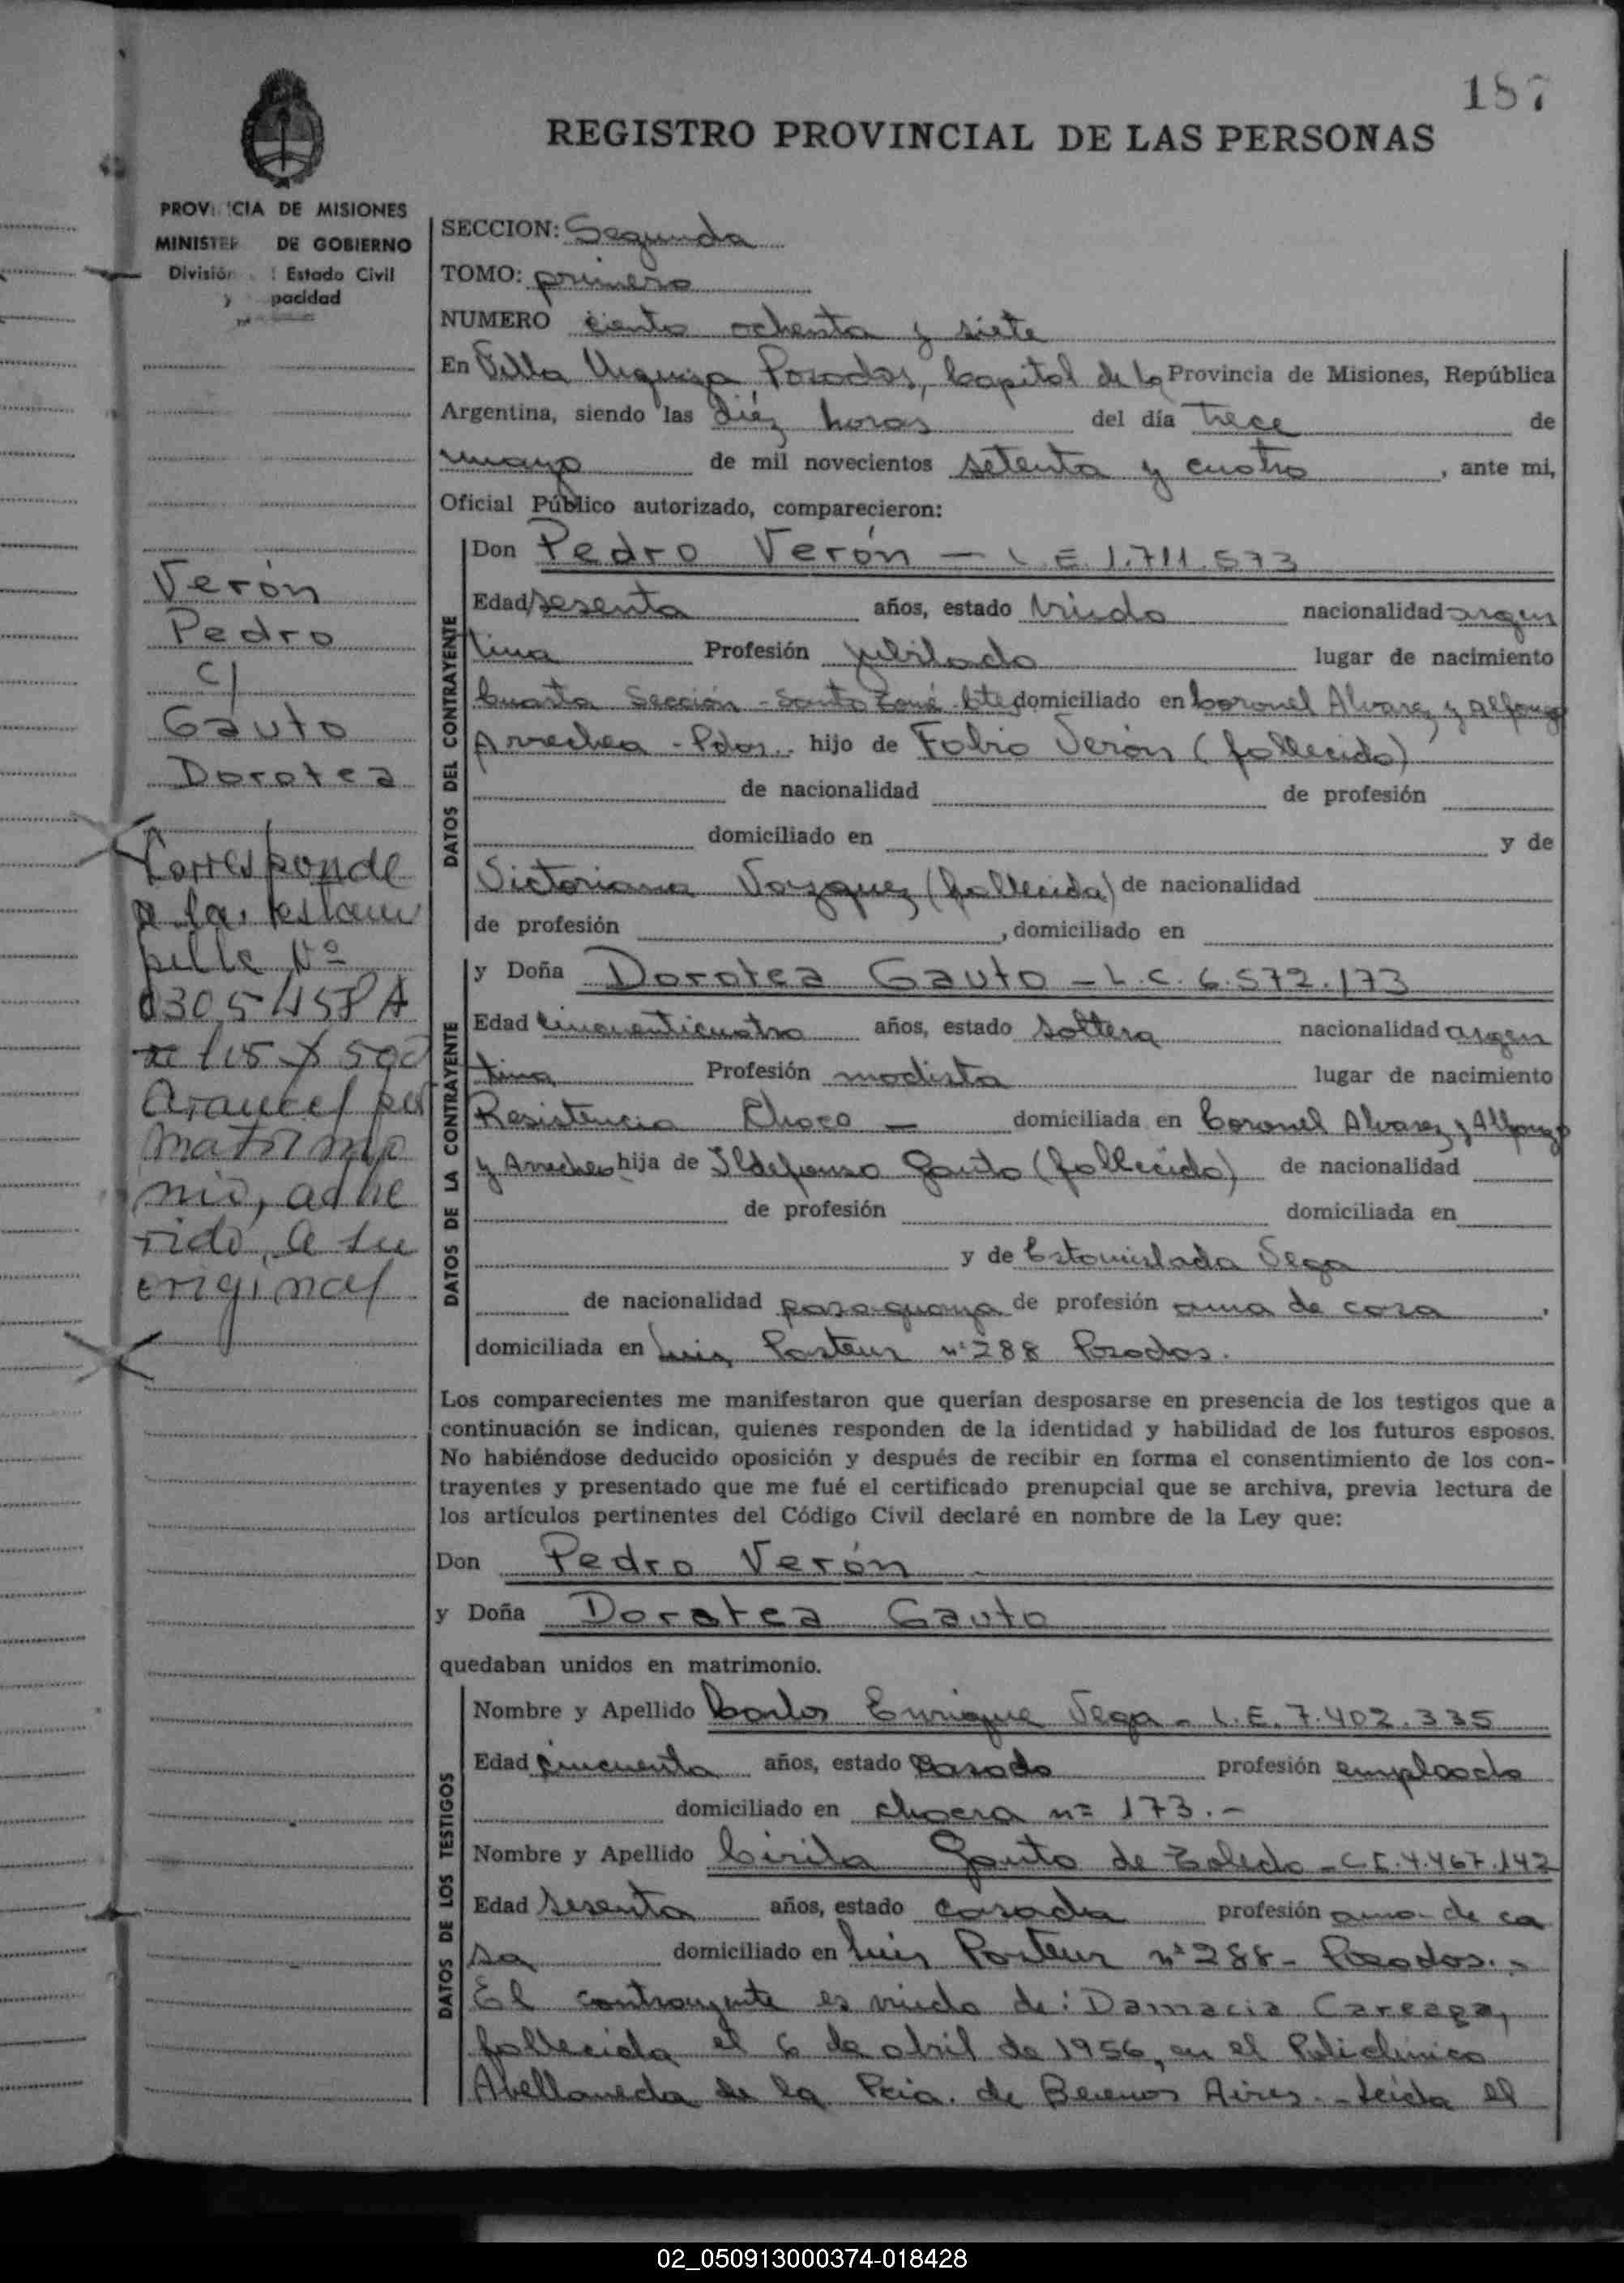 187
REGISTRO PROVINCIAL DE LAS PERSONAS
PROVI CIA DE MISIONES
MINISTER DE GOBIERNO
División Estado Civil
y pacidad
SECCION: Segunda
TOMO: primero
NUMERO ciento ochenta y siete
En Villa Urquiza Posadas, Capital de la Provincia de Misiones, República
Argentina, siendo las diéz horas del día trece de
mayo de mil novecientos setenta y cuatro, ante mi,
Oficial Público autorizado, comparecieron:
Verón
Pedro
c/
Gauto
Dorotea
Corresponde
a la estam
pilla Nº
0305458 A
de los $ 500
Arancel por
matrimo
nio, adhe
rido, a su
original
DATOS DEL CONTRAYENTE
Don Pedro Verón - L.E. 1.711.573
Edad sesenta años, estado viudo nacionalidad argen
tina Profesión jubilado lugar de nacimiento
Cuarta Sección - Santo Tomé Ctes domiciliado en Coronel Alvarez y Alfonzo
Arrechea - Pdas.- hijo de Fabio Verón (fallecido)
de nacionalidad de profesión
domiciliado en y de
Victoriana Vazquez (fallecida) de nacionalidad
de profesión , domiciliado en
DATOS DE LA CONTRAYENTE
y Doña Dorotea Gauto - L.C. 6.572.173
Edad cincuenticuatro años, estado soltera nacionalidad argen
tina Profesión modista lugar de nacimiento
Resistencia Chaco - domiciliada en Coronel Alvarez y Alfonzo
y Arrechea hija de Ildefonso Gauto (fallecido) de nacionalidad
de profesión domiciliada en
y de Estanislada Vega
de nacionalidad paraguaya de profesión ama de casa ,
domiciliada en Luis Pasteur nº 288 Posadas.
Los comparecientes me manifestaron que querían desposarse en presencia de los testigos que a
continuación se indican, quienes responden de la identidad y habilidad de los futuros esposos.
No habiéndose deducido oposición y después de recibir en forma el consentimiento de los con-
trayentes y presentado que me fué el certificado prenupcial que se archiva, previa lectura de
los artículos pertinentes del Código Civil declaré en nombre de la Ley que:
Don Pedro Verón
y Doña Dorotea Gauto
quedaban unidos en matrimonio.
DATOS DE LOS TESTIGOS
Nombre y Apellido Carlos Enrique Vega - L.E. 7.402.335
Edad cincuenta años, estado casado profesión empleado
domiciliado en chacra nº 173.-
Nombre y Apellido Cirila Gauto de Toledo - C.I. 4.467.142
Edad sesenta años, estado casada profesión ama de ca
sa domiciliado en Luis Pasteur nº 288 - Posadas.-
El contrayente es viudo de: Damacia Careaga,
fallecida el 6 de abril de 1956, en el Policlinico
Avellaneda de la Pcia. de Buenos Aires.- Leida el
02_050913000374-018428